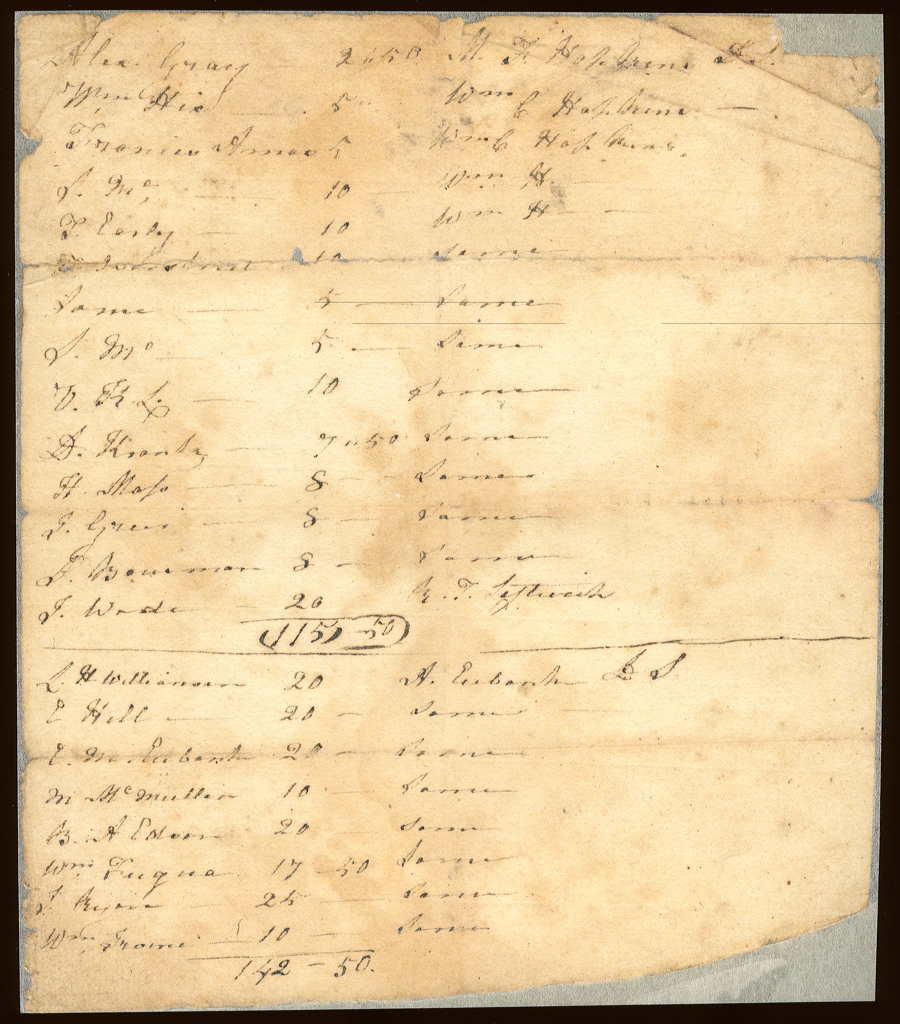 Alex. Gray — 2 " 50 M. F. Hopkins D. S.
Wm Hix — 5 " Wm C Hopkins —
Francis Amos 5 Wm C Hopkins
S. Mc, — 10 Wm H.
T. Early — 10 Wm H —
10 Same
Same — 5 — Same
S. Mc — 5 — Same
V. K L. — 10 Same
D. Krantz — 7 " 50 Same
H. Moss — 8 — Same
J. Greer — 8 — Same
J. Bowman 8 — Same
J. Wade — 20 R. T. Leftwich
(115) - 50)
L. H Williamson 20 A. Eubank D S
E Hill — 20 — Same
E. M. Eubank 20 — Same
M McMullen 10 — Same
B. A Edson 20 Same
Wm Fuqua 17 50 Same
J Ryan — 25 — Same
Wm — 10 — Same
142 - 50.